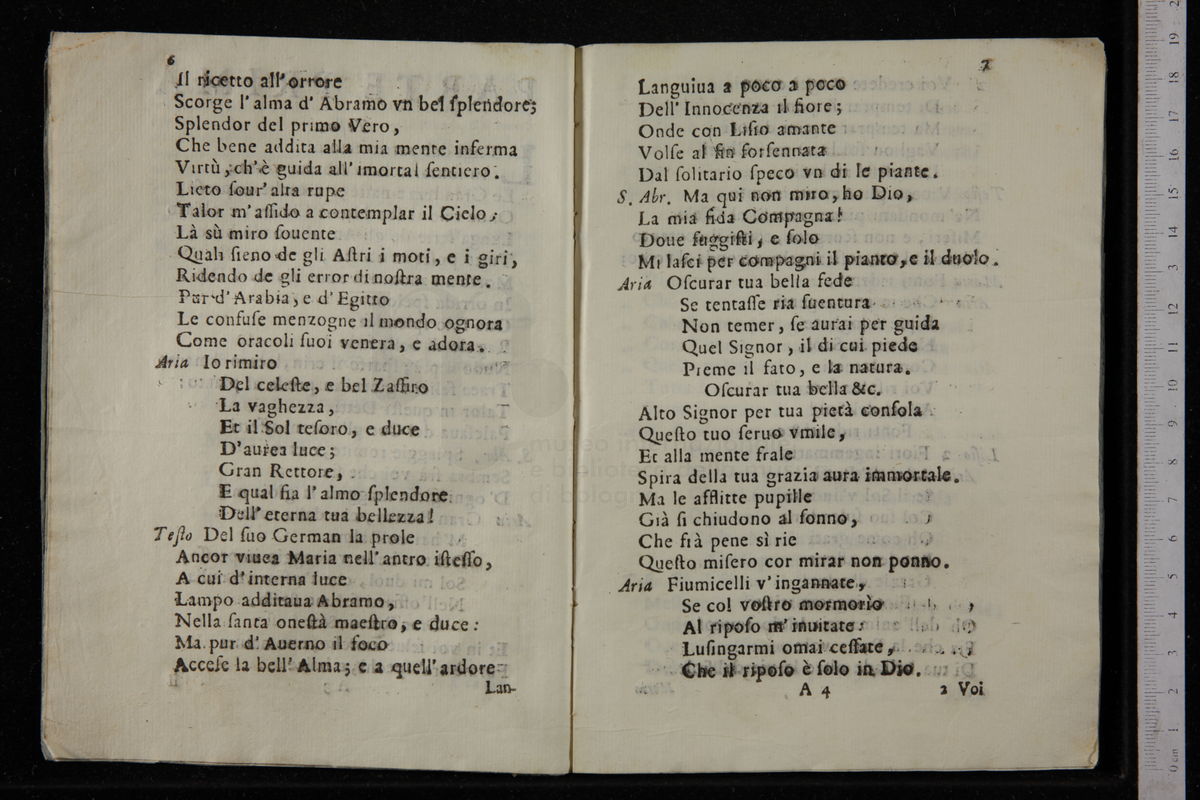 6
Il ricetto all'orrore
Scorge l'alma d' Abramo vn bel ſplendore;
Splendor del primo Vero,
Che bene addita alla mia mente inferma
Virtù, ch'è guida all' imortal ſentiero.
Lieto ſour' alta rupe
Talor m'aſſido a contemplar il Cielo;
Là sù miro ſouente
Quali ſieno de gli Aſtri i moti, e i giri,
Ridendo de gli error di noſtra mente.
Pur d'Arabia, e d'Egitto
Le confuſe menzogne il mondo ognora
Come oracoli ſuoi venera, e adora.
Aria Io rimiro
Del celeſte, e bel Zaffiro
La vaghezza,
Et il Sol teſoro, e duce
D'aurea luce;
Gran Rettore,
E qual ſia l'almo ſplendore
Dell'eterna tua bellezza!
Teſto Del ſuo German la prole
Ancor viuea Maria nell'antro iſteſſo,
A cui d'interna luce
Lampo additaua Abramo,
Nella ſanta oneſtà maeſtro, e duce:
Ma pur d' Auerno il foco
Acceſe la bell' Alma; e a quell'ardore
Lan-
7
Languiua a poco a poco
Dell' Innocenza il fiore;
Onde con Liſio amante
Volſe al fin forſennata
Dal ſolitario ſpeco vn di le piante.
S. Abr. Ma qui non miro, ho Dio,
La mia fida Compagna!
Doue fuggiſti, e ſolo
Mi laſci per compagni il pianto, e il duolo.
Aria Oſcurar tua bella fede
Se tentaſſe ria ſuentura
Non temer, ſe aurai per guida
Quel Signor, il di cui piede
Preme il fato, e la natura.
Oſcurar tua bella &c.
Alto Signor per tua pietà conſola
Queſto tuo ſeruo vmile,
Et alla mente frale
Spira della tua grazia aura immortale.
Ma le afflitte pupille
Già ſi chiudono al ſonno,
Che fià pene sì rie
Queſto miſero cor mirar non ponno.
Aria Fiumicelli v'ingannate,
Se col voſtro mormorìo
Al ripoſo m'inuitate:
Luſingarmi omai ceſſate,
Che il ripoſo è ſolo in Dio.
A 4 2 Voi